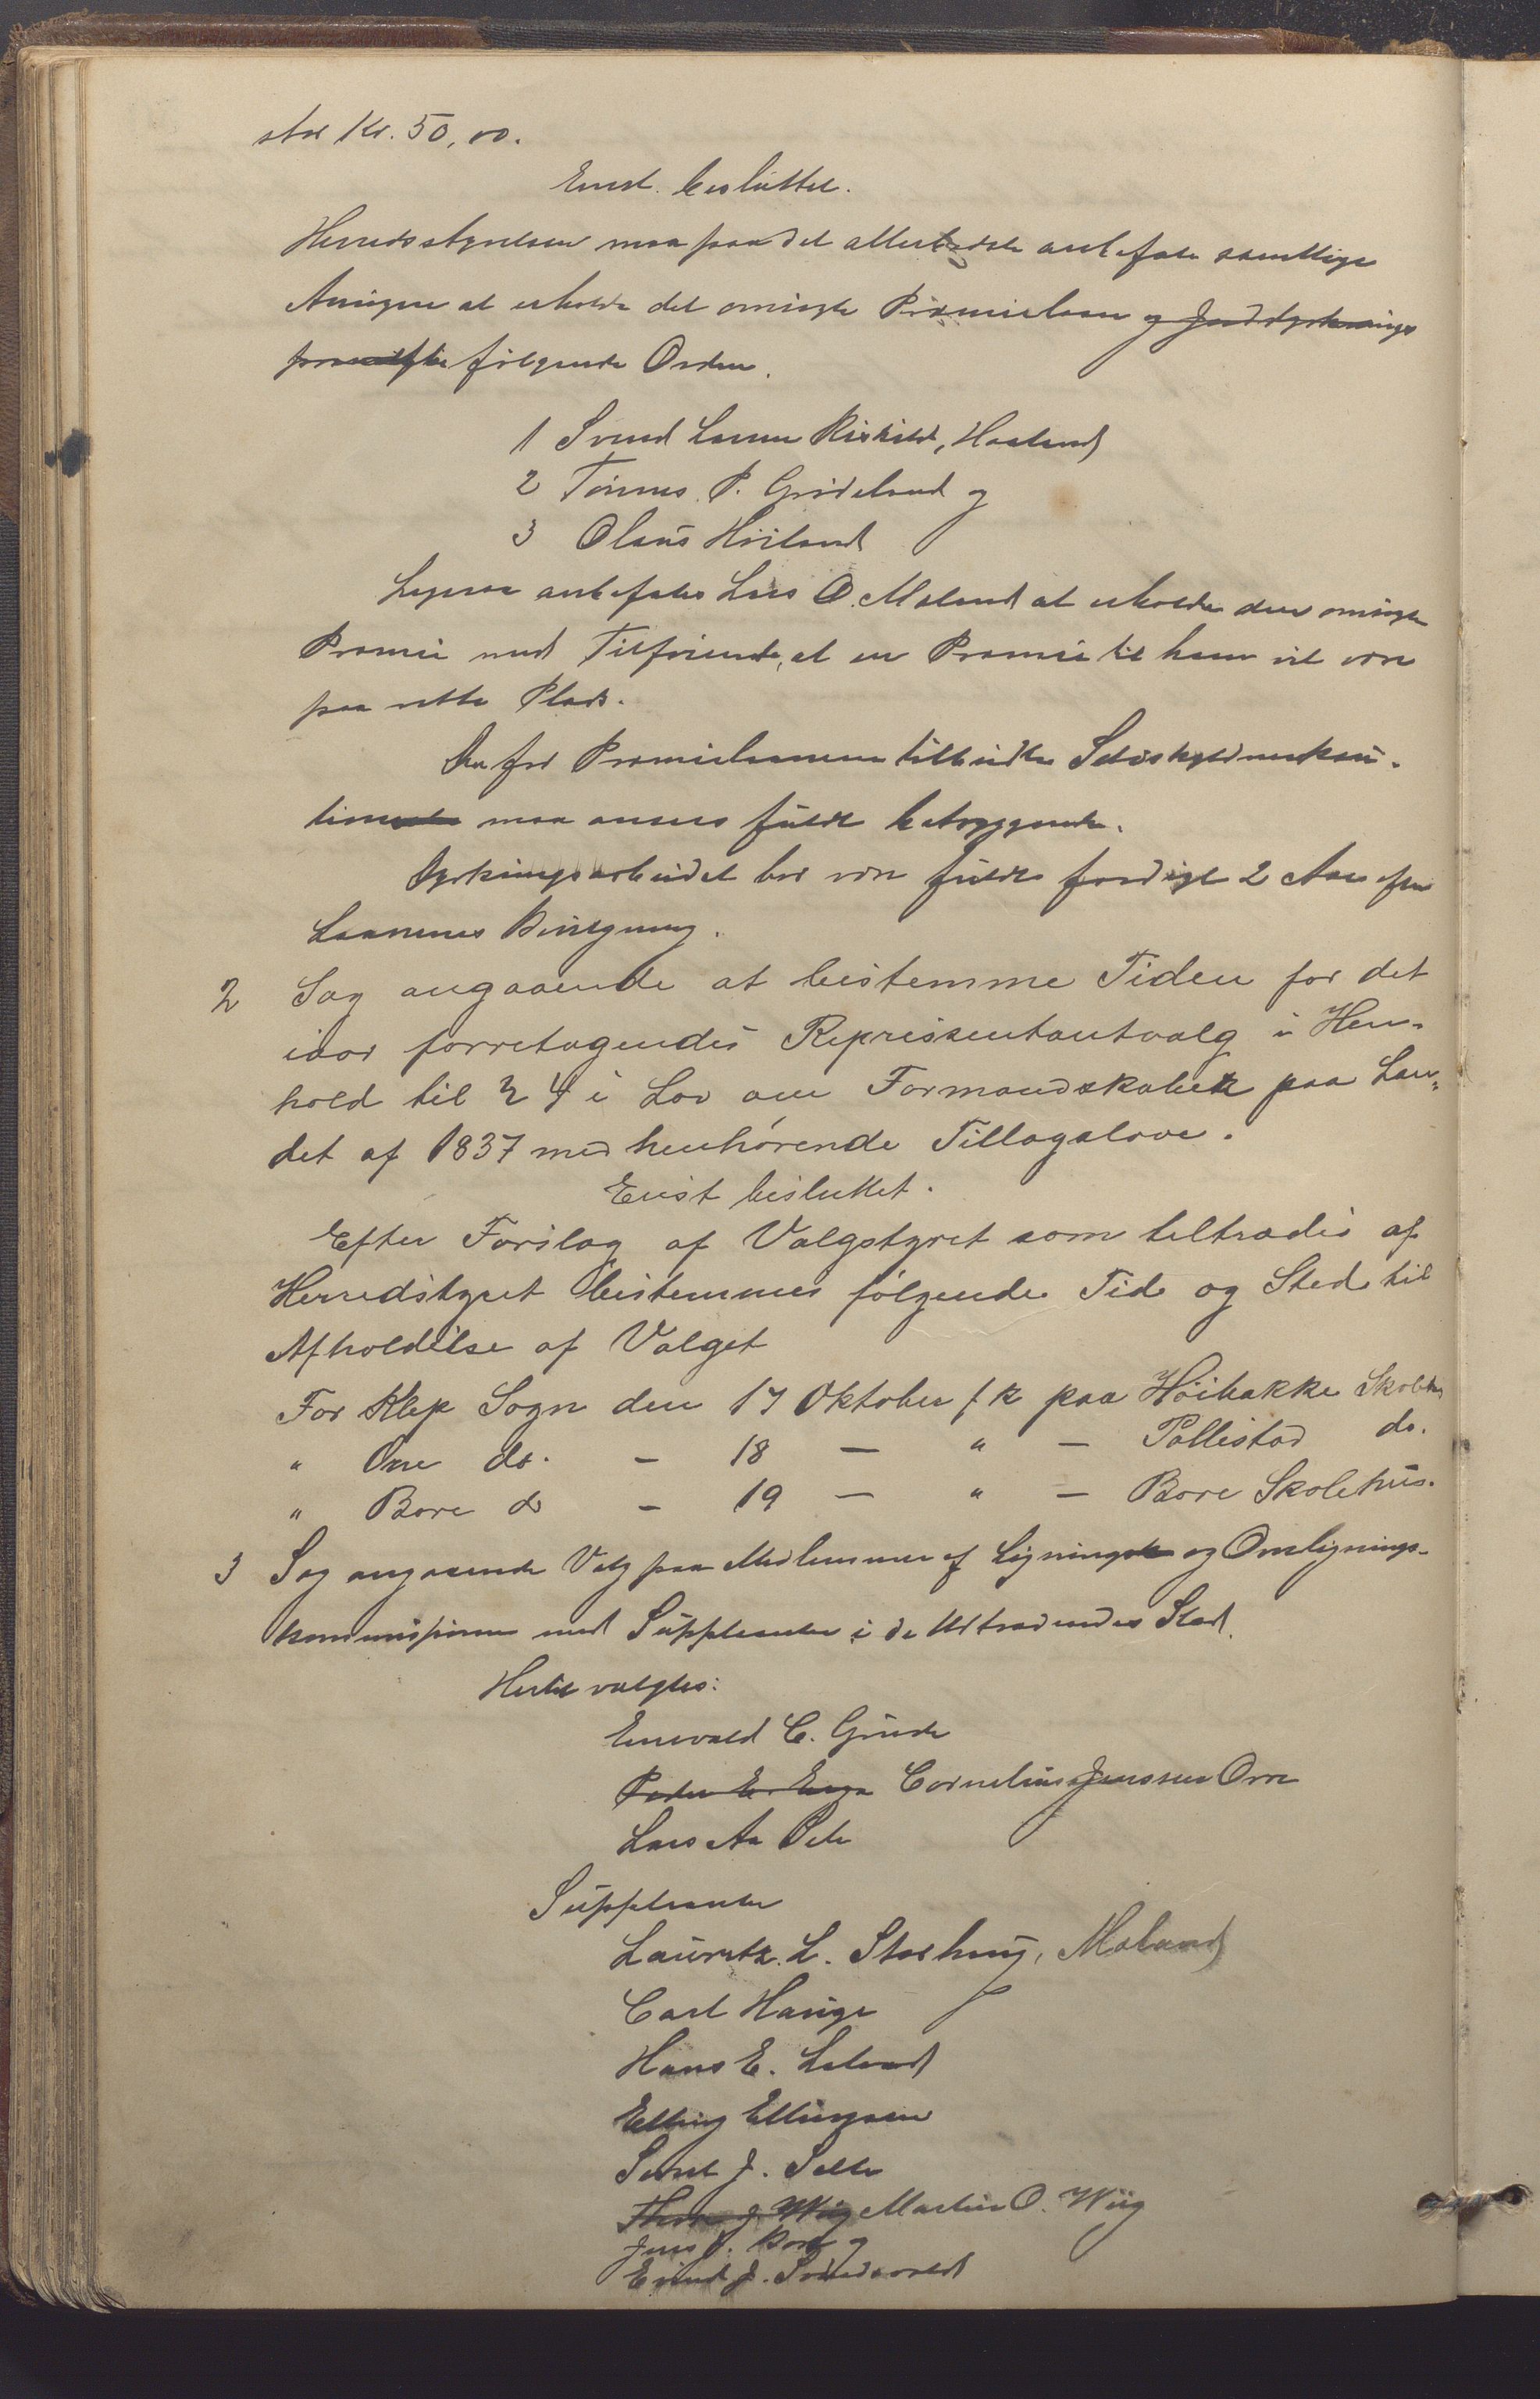 stor Kr. 50,00.
Enst. besluttet.
Herredsstyrelsen maa paa det allerbedste anbefale samtlige
Ansøgere at erholde det omsøgte Præmielaan og Jorddyrknings
følgende Orden.
1 Svend Larsen Haaland
2 Tønnes P. Grødeland og
3 Olaus Høiland
Ligesaa anbefales Lars O. Maland at erholde den omsøgte
Præmie med Tilføiende, at en Præmie til ham vil være
paa rette Plads.
Den for Præmielaanene tilbudte Selvskyldnerkau-
tion maa ansees fuldt betryggende.
Dyrkningsarbeidet bør være fuldt færdigt 2 Aar efter
Laanenes Bevilgning.
2 Sag angaaende at bestemme Tiden for det
iaar forretagendes Represæntantvalg i Hen-
hold til § 4 i Lov om Formandskaber paa Lan-
det af 1837 med henhørende Tillægslove.
Enst besluttet.
Efter Forslag af Valgstyret som teltrædes af
Herredstyret bestemmes følgende Tid og Sted til
Afholdelse af Valget
For Klep Sogn den 17 Oktober f k paa Høibakke Skolehus
" Orre do. - 18 — " — Pollestad do.
" Bore do - 19 — " — Bore Skolehus.
3 Sag angaaende Valg paa Medlemmer af Lignings og Overlignings-
kommissionen med Suppleanter i de Udtrædendes Sted.
Hertil valgtes:
Enevald C. Grude
Peder E. Erga Cornelius Jenssen Orre
Lars Aa Sele
Suppleanter
Lauritz L. Storhaug, Maland
Carl Hauge
Hans E. Laland
Elling Ellingsen
Sivert J. Selle
Thore J. Wiig Martin O. Wiig
Jens J. Bore og
Eivind J. Sævold